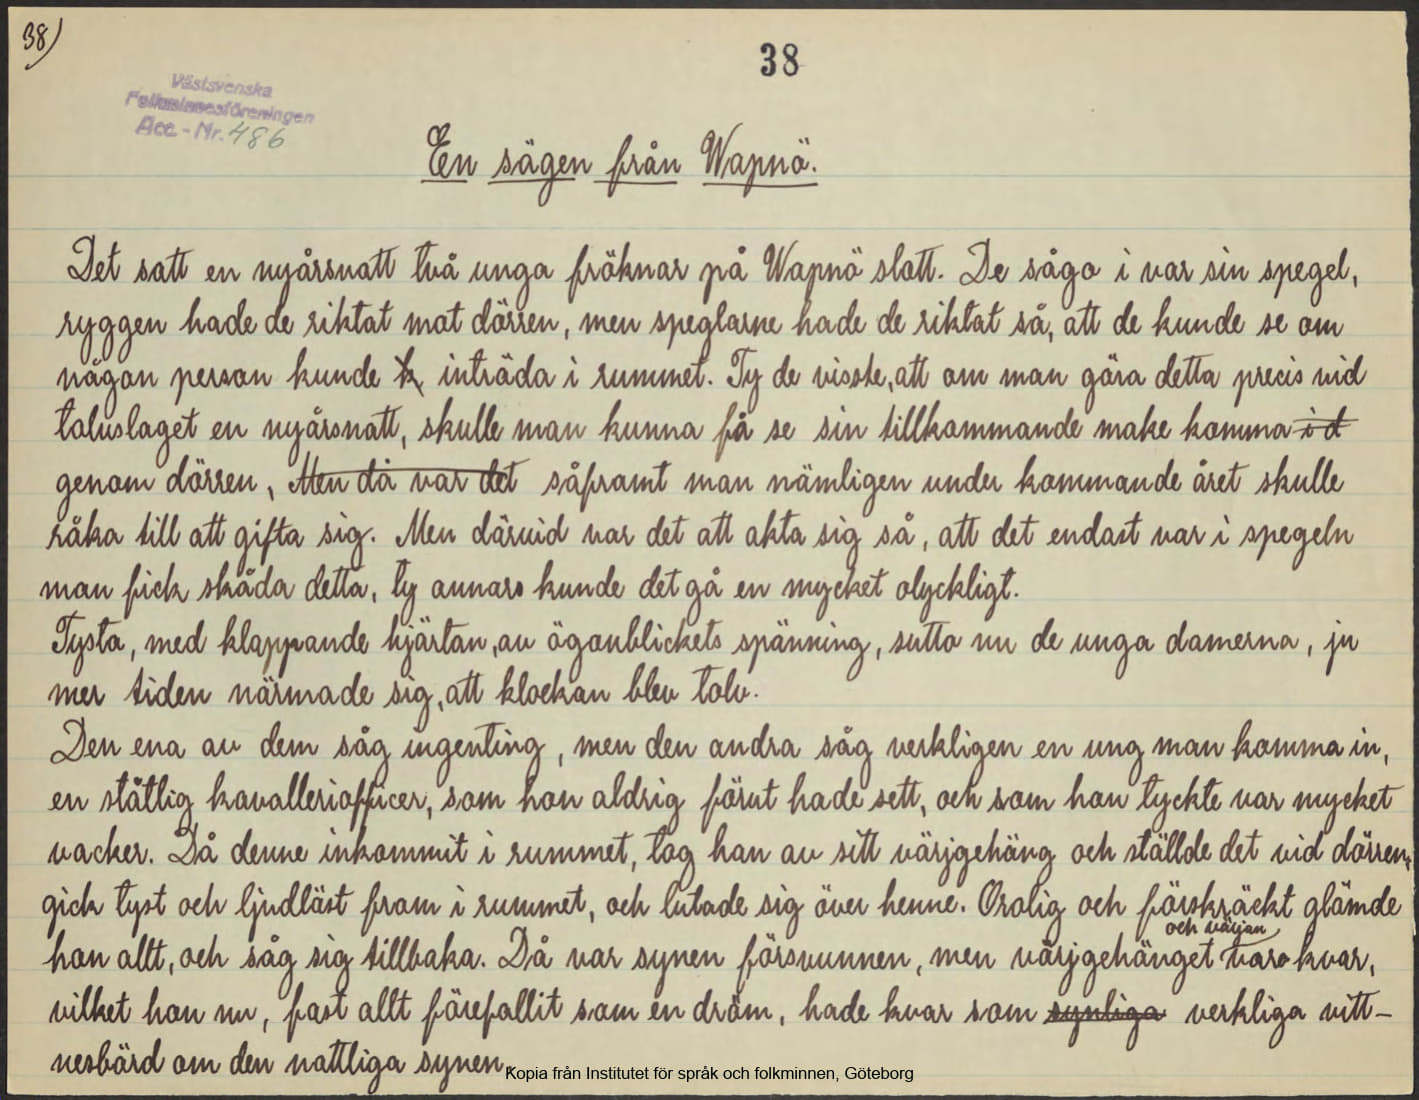 38)
38
Västsvenska
Folkminnesföreningen
Acc.-Nr. 486
En sägen från Wapnö.
Det satt en nyårsnatt två unga fröknar på Wapnö slott. De sågo i var sin spegel,
ryggen hade de riktat mot dörren, men speglarne hade de riktat så, att de kunde se om
någon person kunde k inträda i rummet. Ty de visste, att om man göra detta precis vid
tolvslaget en nyårsnatt, skulle man kunna få se sin tillkommande make komma i d
genom dörren, Men då var det såframt man nämligen under kommande året skulle
råka till att gifta sig. Men därvid var det att akta sig så, att det endast var i spegeln
man fick skåda detta, ty annars kunde det gå en mycket olyckligt.
Tysta, med klappande hjärtan, av ögonblickets spänning, sutto nu de unga damerna, ju
mer tiden närmade sig, att klockan blev tolv.
Den ena av dem såg ingenting, men den andra såg verkligen en ung man komma in,
en ståtlig kavalleriofficer, som hon aldrig förut hade sett, och som hon tyckte var mycket
vacker. Då denne inkommit i rummet, tog han av sitt värjgehäng och ställde det vid dörren,
gick tyst och ljudlöst fram i rummet, och lutade sig över henne. Orolig och förskräckt glömde
och värjan
hon allt, och såg sig tillbaka. Då var synen försvunnen, men värjgehänget voro kvar,
vilket hon nu, fast allt förefallit som en dröm, hade kvar som synliga verkliga vitt-
nesbörd om den nattliga synen.
Kopia från Institutet för språk och folkminnen, Göteborg